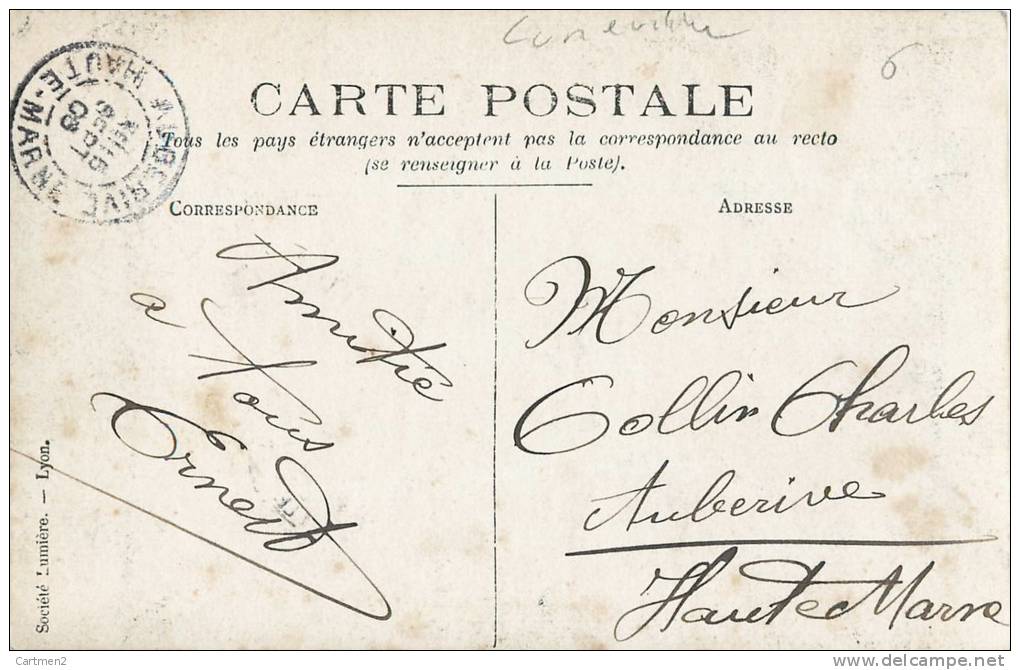 6
CARTE POSTALE
Tous les pays étrangers n'acceptent pas la correspondance au recto
(se renseigner à la Poste).
AUBERIVE
HAUTE-MARNE
CORRESPONDANCE
Amitié
a tous
Ernest
ADRESSE
Monsieur
Collin Charles
Auberive
Haute Marne
Société Lumière. — Lyon.
Cartmen2
http://www.delcampe.net